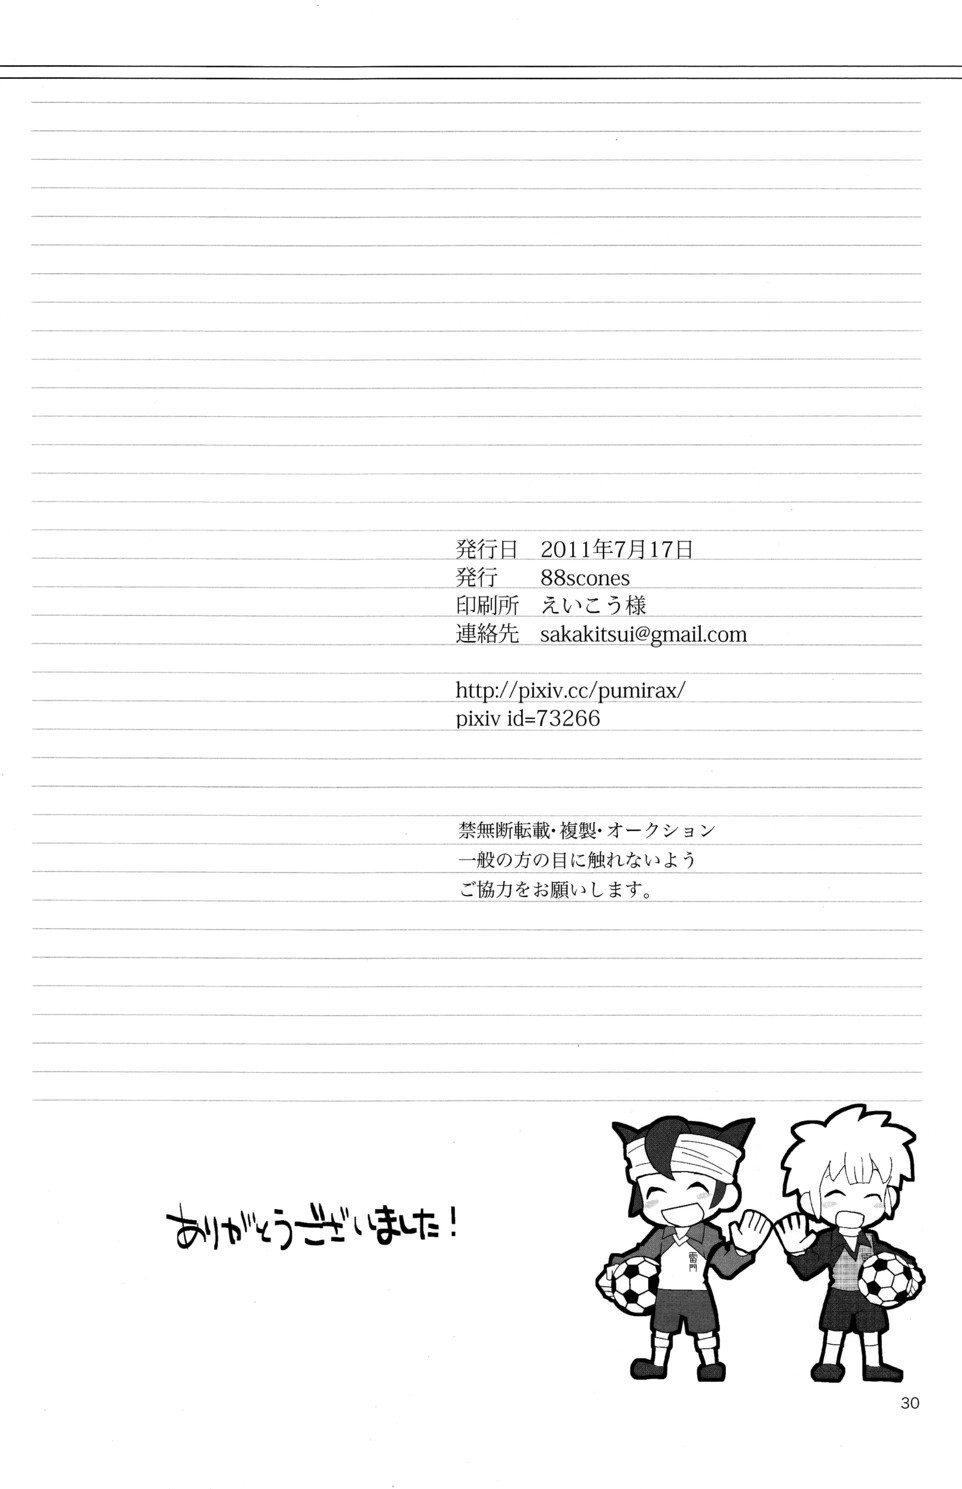 発行日　2011年7月17日
発行　　88scones
印刷所　えいこう様
連絡先　sakakitsui@gmail.com
http://pixiv.cc/pumirax/
pixiv id=73266
禁無断転載・複製・オークション
一般の方の目に触れないよう
ご協力をお願いします。
ありがとうございました！
雷門
30